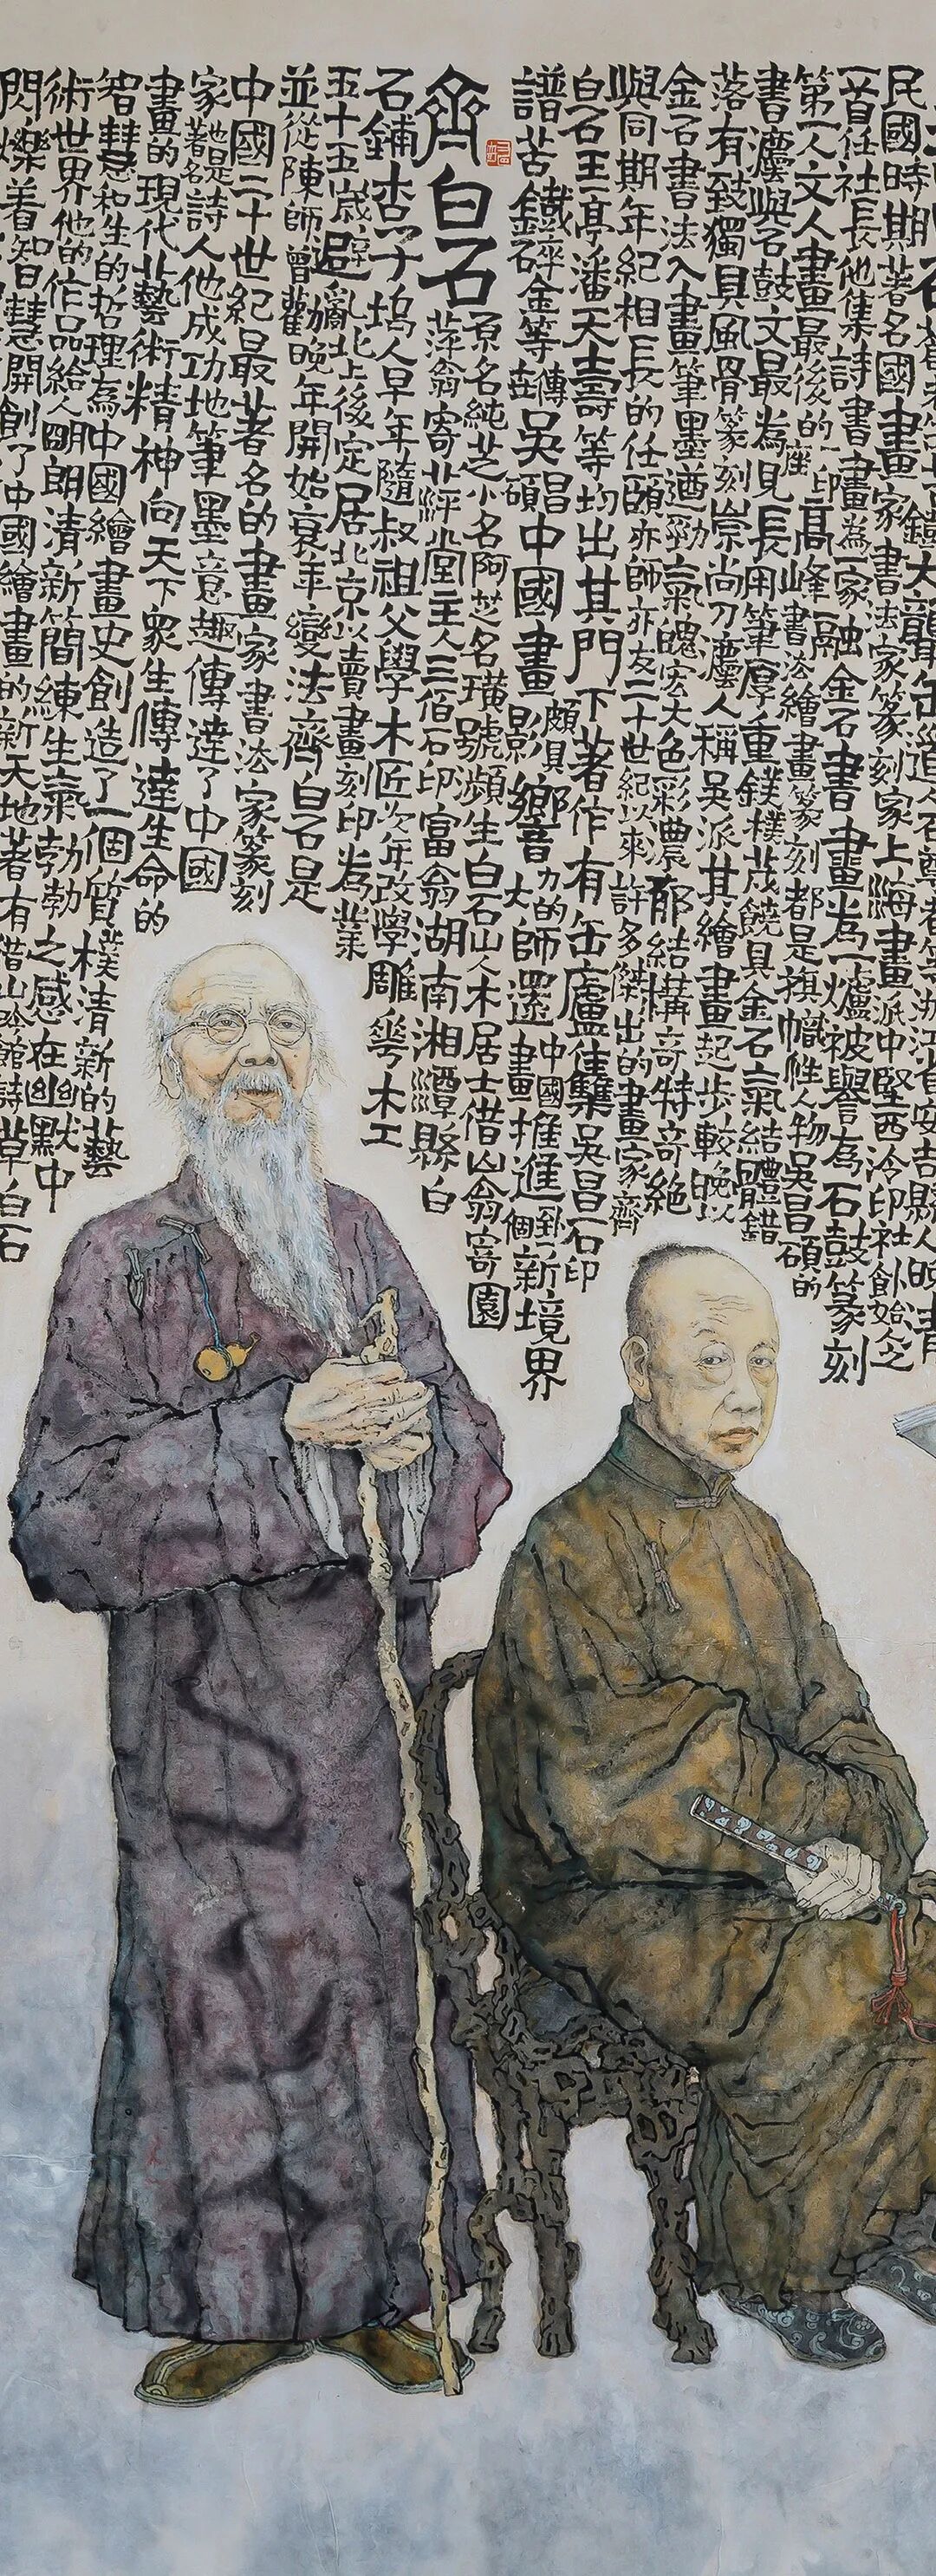 大聾缶道人石尊者等浙江省安吉縣人晚清
民國時期著名國畫家書法家篆刻家上海畫派中堅西泠印社創始人之
一首任社長他集詩書畫為一家融金石書畫為一爐被譽為石鼓篆刻
第一人文人畫最後的座高峰書法繪畫篆刻都是旗幟性人物吳昌碩的
書灋與石鼓文最為見長用筆厚重鏷樸茂饒具金石氣結體錯
落有致獨具風骨篆刻崇尚刀灋人稱吳派其繪畫起步較晚以
金石書法入畫筆墨遒勁氣魄宏大色彩濃郁結構奇特奇絕
與同期年紀相長的任頤亦師亦友二十世紀以來許多傑出的畫家齊
白石王一亭潘天壽等均出其門下著作有缶廬集吳昌石印
譜苦鐵碎金等傳吳昌碩中國畫頗具影響力的大師還畫中國推進到個新境界
齊白石
原名純芝小名阿芝名璜號瀕生白石山人木居士借山翁寄園
萍翁寄萍堂主人三佰石印富翁湖南湘潭縣白
石鋪杏子塢人早年隨叔祖父學木匠次年改學雕花木工
五十五歲避亂北上後定居北京以賣畫刻印為業
並從陳師曾勸晚年開始衰年變法齊白石是
中國二十世紀最著名的畫家書法家篆刻
家他是著名詩人他成功地筆墨意趣傳達了中國
畫的現代藝術精神向天下眾生傳達生命的
智慧和生的哲理為中國繪畫史創造了一個質樸清新的藝
術世界他的作品給人明朗清新簡練生氣勃勃之感在幽默中
閃爍着知智慧開創了中國繪畫的新天地著有借山吟館詩草白石